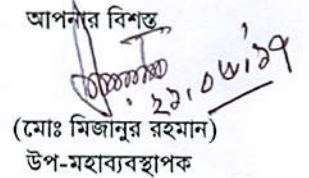 আপনার বিশস্ত
২১.০৮.১৭
(মোঃ মিজানুর রহমান)
উপ-মহাব্যবস্থাপক